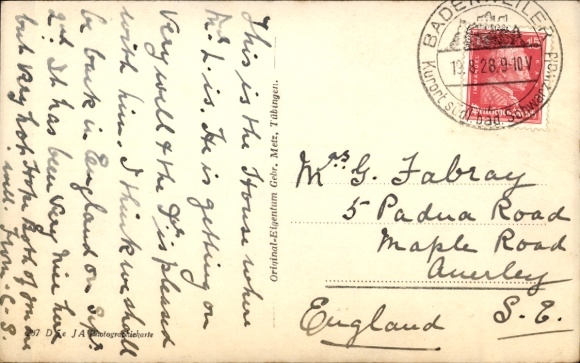 This is the House where
Mr L is. He is getting on
very well & the Dr is pleased
with him. I think we shall
be back in England on Sat:
2nd. It has been very nice here
but very hot. Hope both of you
well From C-S.
Original-Eigentum Gebr. Metz, Tübingen.
JA Photographiekarte
BADENWEILER
19.8.28.9-10V
Kurort südl. bad. Schwarzwald
Mrs G. Fabray
5 Padua Road
Maple Road
Anerley
S.E.
England